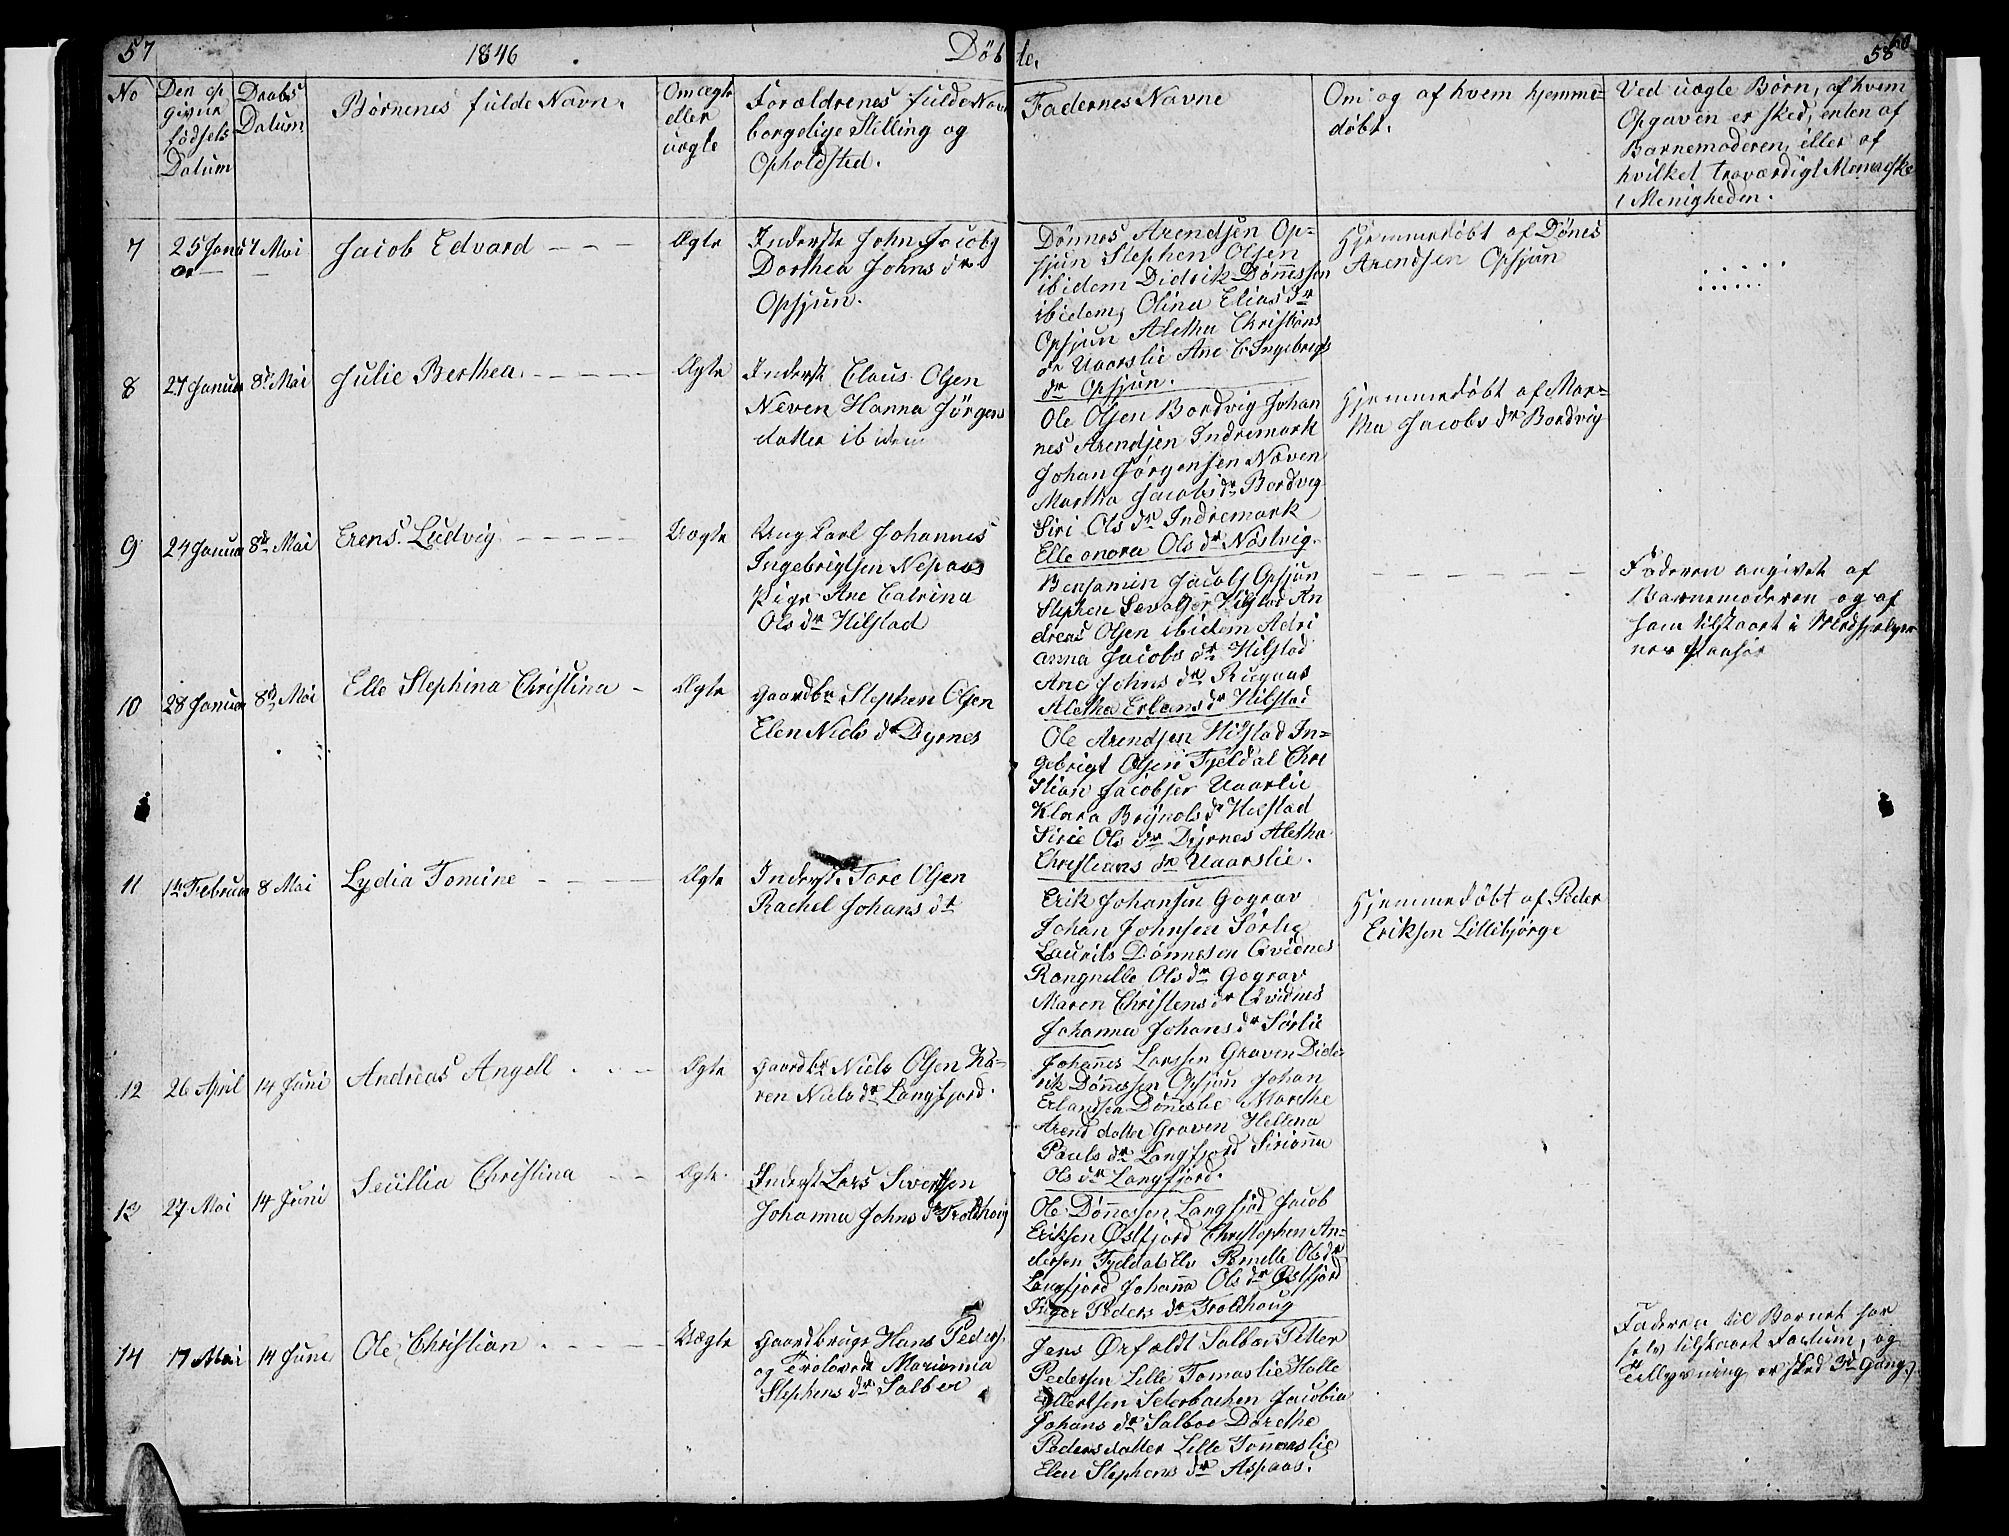 57
1846
Døb
te.
58
60
No
Den op
givne
Fødsels
Datum
Daabs
Datum
Børnenes fulde Navn.
Om ægte
eller
uægte
Forældrenes fulde Navn
borgelige Stilling og
Opholdsted.
Fadernes Navne
Om og af hvem hjemme=
døbt.
Ved uægte Børn, af hvem
Opgaven er sked, enten af
Barnemoderen, eller af
hvilket troværdigt Menneske
i Menigheden.
7
25 Janu
ar
7 Mai
Jacob Edvard
Ægte
Inderste John Jacobs
Dorthea Johns dr
Opsjun.
Dønnes Arendsen Op=
sjun Stephen Olsen
ibidem Didrik Dønnessen
ibidem, Olina Elias dr
Opsjun Aletha Christians
dr Uaarslie Ane C Ingebrigts
dr Opsjun.
Hjemmedøbt af Dønes
Arendsen Opsjun
8
27 Januar
8de Mai
Julie Berthea
Ægte
Inderst Claus Olsen
Næven Hanna Jörgens
datter ibidem
Ole Olsen Bordvig Johan
nes Arendsen Indremark
Johan Jørgensen Næven
Martha Jacobs dr Bordvig
Siri Ols dr Indremark
Elleonora Ols dr Nöstvig.
Hjemmedøbt af Mar=
tha Jacobs dr Bordvig
9
24 Januar
8de Mai
Erens Ludvig
Uægte
Ung Karl Johannes
Ingebrigtsen Nepaas
Pige Ane Catrina
Ols dr Hilstad
Benjamin Jacobs Opsjun
Stephen Hilstad An
dreas Olsen ibidem Adri
anna Jacobs dr Hilstad
Ane Johns dr
Aletha Erlans dr Hilstad
Faderen angivet af
Barnemoderen og af
ham tilstaaet i Medhjelper
nes Paahør
10
28 Januar
8de Mai
Elle Stephina Christina
Ægte
Gaardbr Stephen Olsen
Elen Niels dr Dyrnes
Ole Arendsen Hilstad In=
gebrigt Olsen Fjeldal Chri
stian Jacobsen Uaarlie
Klara Brynols dr Hilstad
Sirie Ols dr Dyrnes Aletha
Christians dr Uaarslie.
11
14 Februar
8 Mai
Lydia Tomine
Ægte
Inderst Tore Olsen
Rachel Johans dt
Erik Johansen Gograv
Johan Johnsen Sörlie
Laurits Dønnesen Qvidnes
Rongnelle Ols dr Gograv
Maren Christens dr Qvidnes
Johanna Johans dr Sörlie
Hjemmedøbt af Peder
Eriksen Lillebjörge
12
26 April
14 Juni
Andreas Angell
Ægte
Gaardbr Niels Olsen Ka=
ren Niels dr Langfjord.
Johannes Larssen Graven Dide
rik Dønnessen Opsjun Johan
Erlandsen Døneslie Marthe
Arend datter Graven Hellena
Pauls dr Langfjord Sirianna
Ols dr Langfjord.
13
27 Mai
14 Juni
Seüllia Christina
Ægte
Inderst Lars Sivertsen
Johanna Johns dr Troldhoug
Ole Dönnessen Langfjod Jacob
Eriksen Østfjord Christophen An=
dersen Pernelle Ols dr
Langfjord Johanna Ols dr Østfjord
Inger Peders dr Troldhoug
14
17 Mai
14 Juni
Ole Christian
Uægte
Gaardbruge Hans Peders.
og Trolovede Marianna
Stephens dr Salber
Jens Ørfaldt Petter
Pedersen Lille Tomaslie Halle
Ellertsen Seterbachen Jacobia
Johans dr Dorethe
Pedersdatter Lille Tomaslie
Elen Stephens dr Aspaas.
Faderen til Barnet har
selv tilstaaet Factum, og
Tillysning er sked 3de Gang.